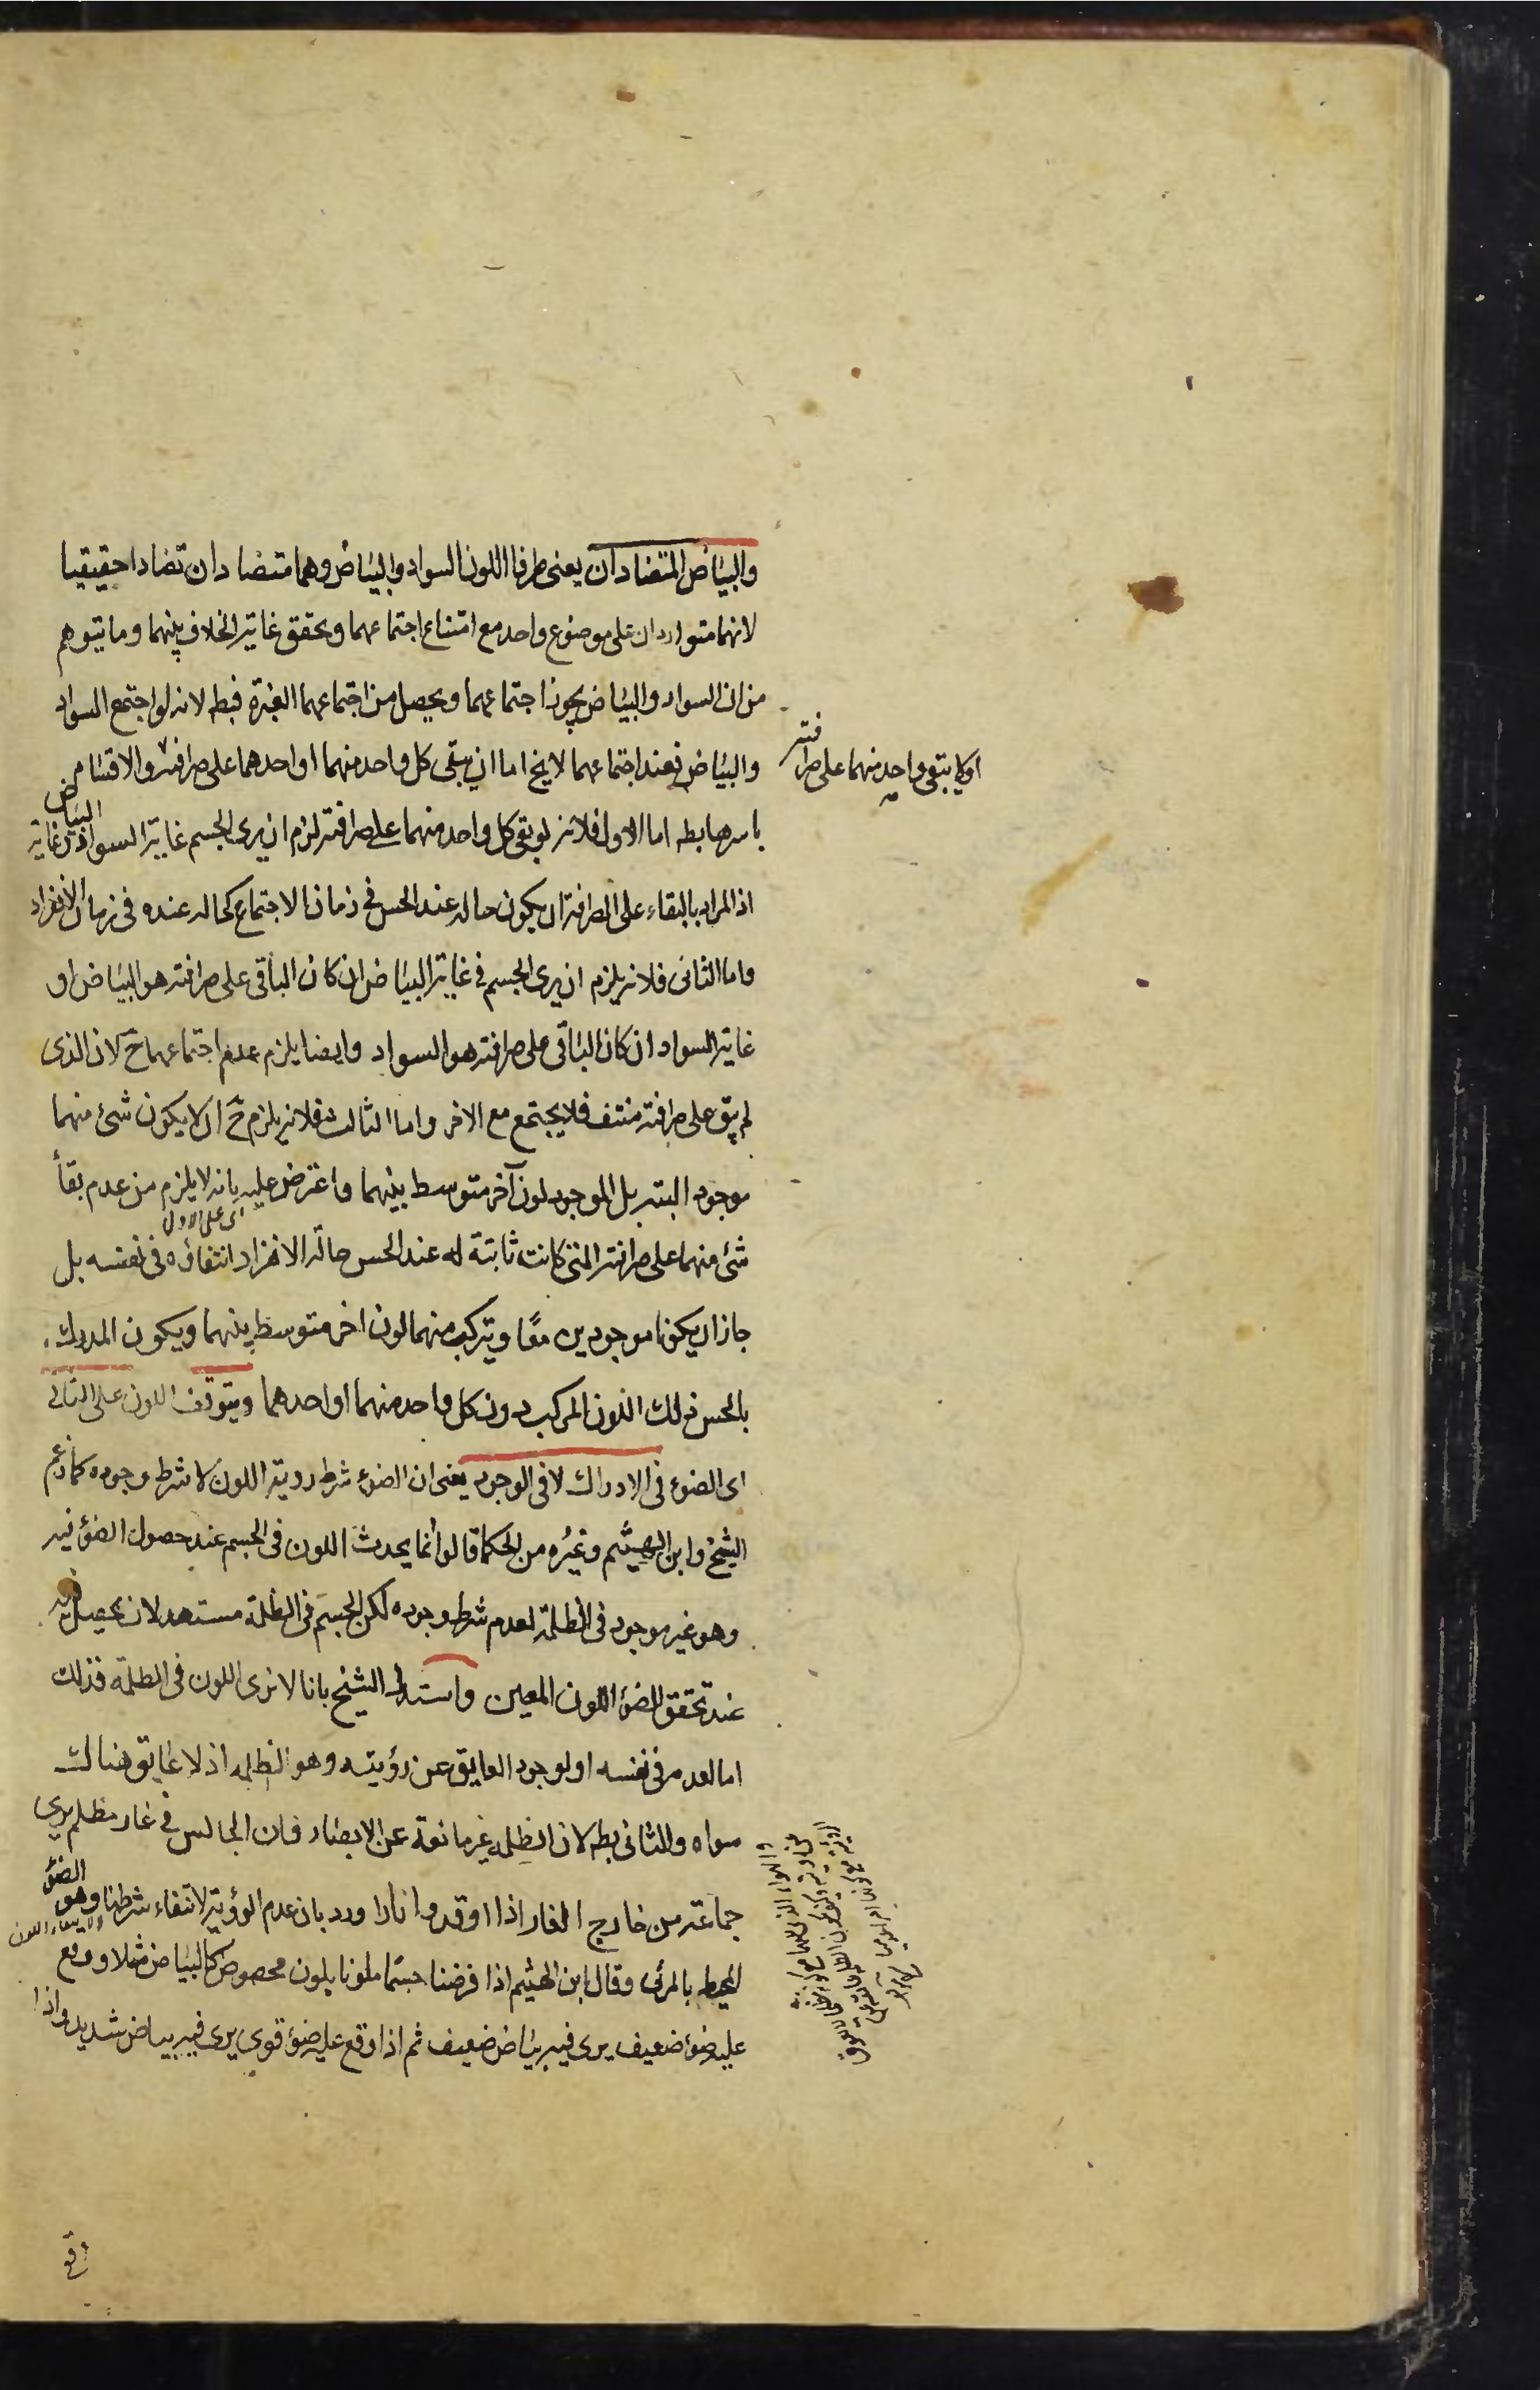 والبياض المتضادان يعنى طرفا اللون السواد والبياض وهما متضادان تضادا حقيقيا
لانهما متواردان على موضوع واحد مع امتناع اجتماعهما وتحقق غاية الخلاف بينهما وما يتوهم
من ان السواد والبياض يجوز اجتماعهما ويحصل من اجتماعهما الغبرة فبط لانه لو اجتمع السواد
والبياض فعند اجتماعهما لا يخ اما ان يبقى كل واحد منهما او احدهما على صرافته والاقسام
او لا يبقى واحد منهما على صرافته
باسرها بط اما الاول فلانه لو بقى كل واحد منهما على صرافته لزم ان يرى الجسم غاية السواد فى غاية
البياض
اذ المراد بالبقاء على الصرافة ان يكون حاله عند الحس فى زمان الاجتماع كحاله عنده فى زمان الانفراد
واما الثانى فلانه يلزم ان يرى الجسم فى غاية البياض ان كان الباقى على صرافته هو البياض او
غاية السواد ان كان الباقى على صرافته هو السواد وايضا يلزم عدم اجتماعهما ح لان الذى
لم يبق على صرافته منتف فلا يجتمع مع الاخر واما الثالث فلانه يلزم ح ان لا يكون شئ منهما
موجود البتة بل الموجود لون آخر متوسط بينهما واعترض عليه بانه لا يلزم من عدم بقأ
اى على الاول
شئ منهما على صرافته التى كانت ثابتة له عند الحس حالة الانفراد انتفاؤه فى نفسه بل
جاز ان يكونا موجودين معًا ويتركب منهما لون اخر متوسط بينهما ويكون المدرك
بالحس ذلك اللون المركب دون كل واحد منهما او احدهما ويتوقف اللون على الثانى
اى الضوء فى الادراك لا فى الوجود يعنى ان الضوء شرط رؤية اللون لا شرط وجوده كما زعم
الشيخ وابن الهيثم وغيره من الحكما قالوا انما يحدث اللون فى الجسم عند حصول الضوء فيه
وهو غير موجود فى الظلمة لعدم شرط وجوده لكن الجسم فى الظلمة مستعد لان يحصل فيه
عند تحقق الضوء اللون المعين واستدل الشيخ بانا لا نرى اللون فى الظلمة فذلك
اما لعدمه فى نفسه او لوجود العايق عن رؤيته وهو الظلمه اذ لا عايق هناك
سواه والثانى بط لان الظلمه غير مانعة عن الابصار فان الجالس فى غار مظلم يرى
جماعة من خارج الغار اذا اوقدوا نارا ورد بان عدم الرؤية لانتفاء شرطنا وهو الضوء
المحيط بالمرئى وقال ابن الهيثم اذا فرضنا جسما ملونا بلون مخصوص كالبياض مثلا ووقع
عليه ضوء ضعيف يرى فيه بياض ضعيف ثم اذا وقع عليه ضوء قوى يرى فيه بياض شديد واذا